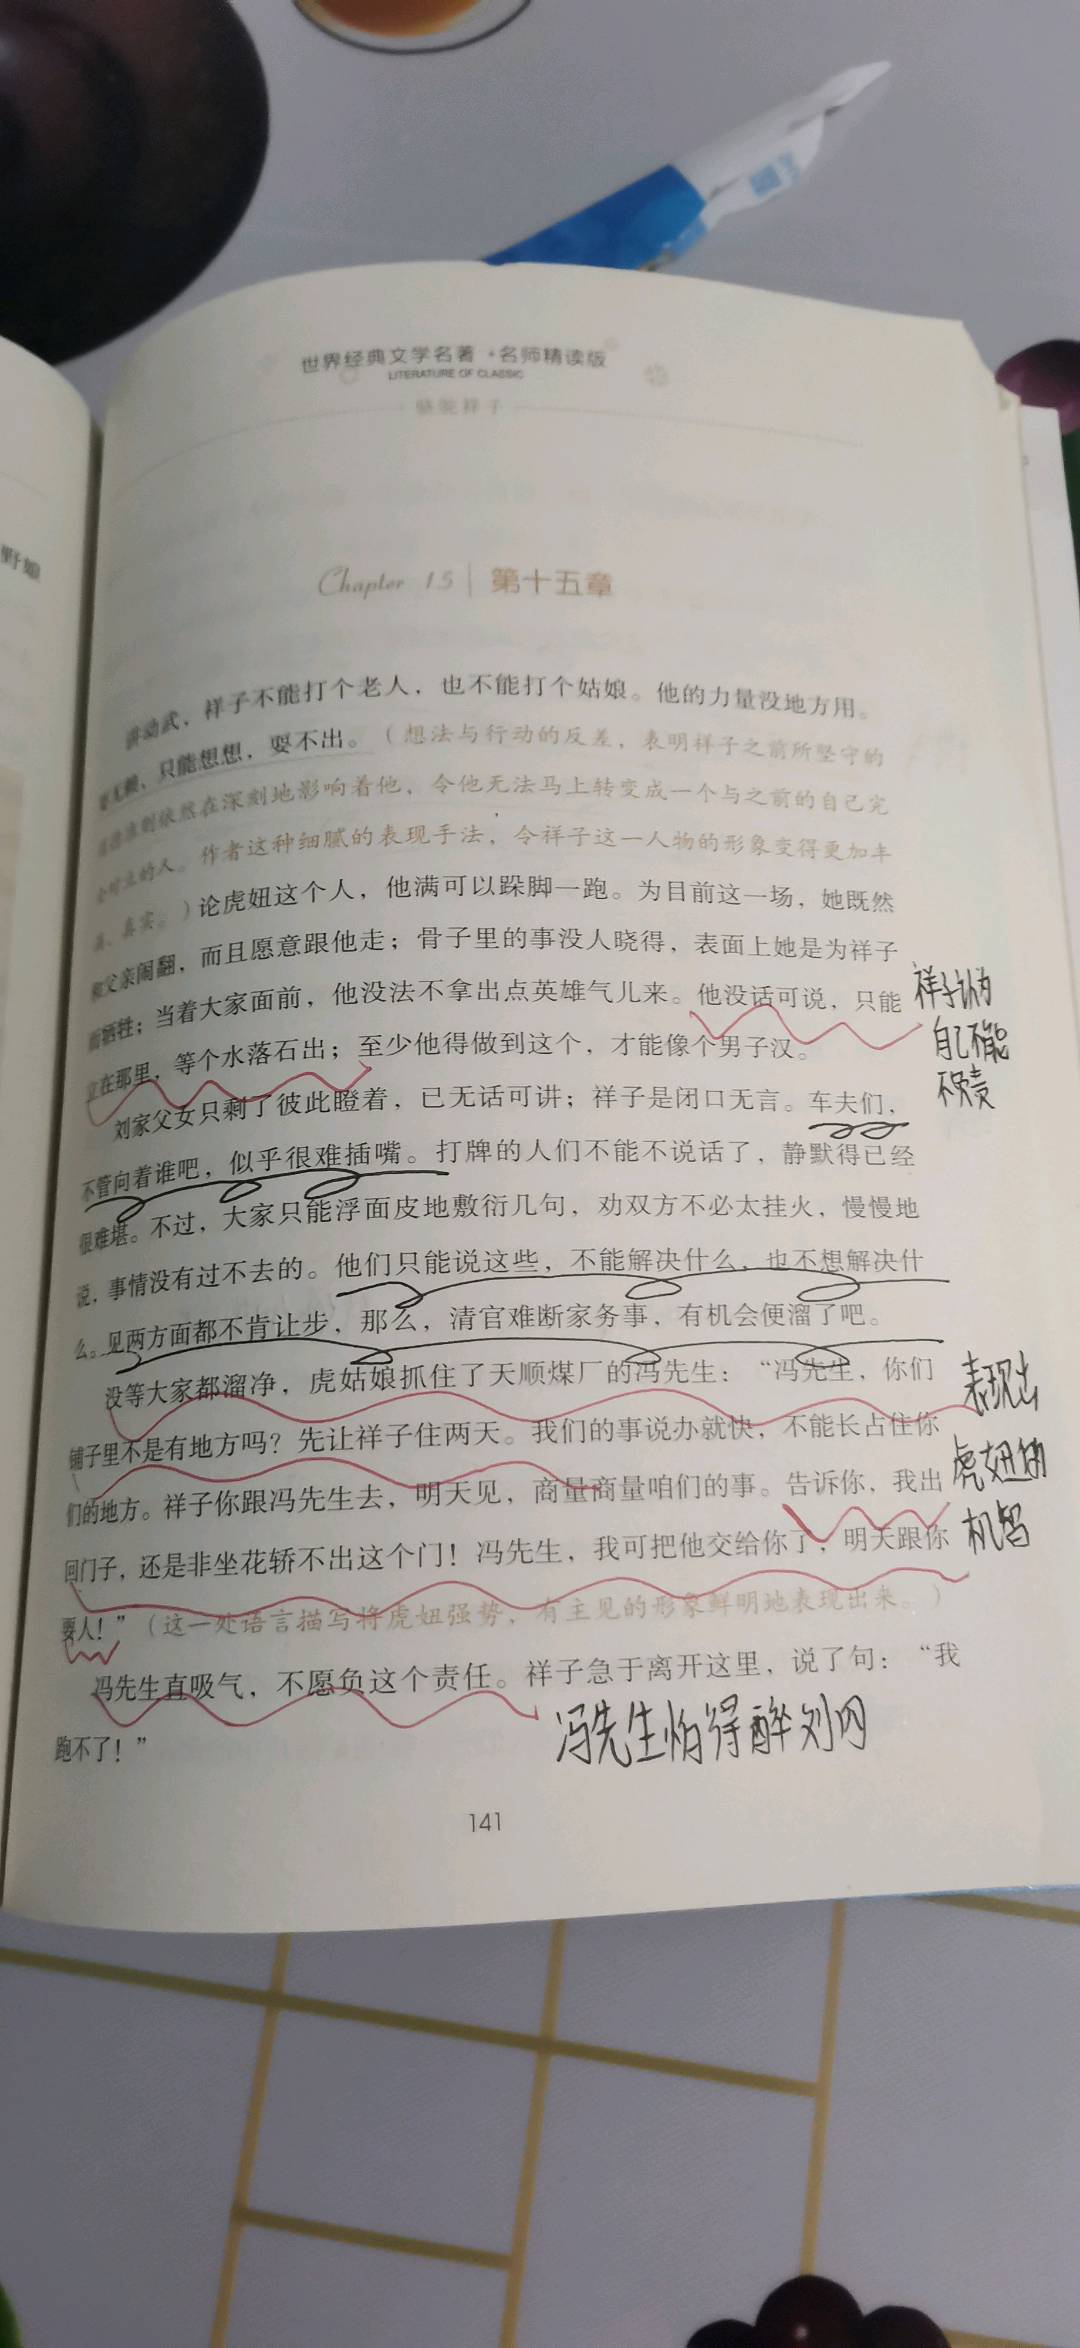 野娘
世界经典文学名著·名师精读版
LITERATURE OF CLASSIC
骆驼祥子
Chapter 15 | 第十五章
讲动武，祥子不能打个老人，也不能打个姑娘。他的力量没地方用。
耍无赖，只能想想，耍不出。（想法与行动的反差，表明祥子之前所坚守的
道德准则依然在深刻地影响着他，令他无法马上转变成一个与之前的自己完
全对立的人。作者这种细腻的表现手法，令祥子这一人物的形象变得更加丰
满、真实。）论虎妞这个人，他满可以跺脚一跑。为目前这一场，她既然
和父亲闹翻，而且愿意跟他走；骨子里的事没人晓得，表面上她是为祥子
而牺牲；当着大家面前，他没法不拿出点英雄气儿来。他没话可说，只能
立在那里，等个水落石出；至少他得做到这个，才能像个男子汉。
祥子认为
自己不能
不负责
刘家父女只剩了彼此瞪着，已无话可讲；祥子是闭口无言。车夫们，
不管向着谁吧，似乎很难插嘴。打牌的人们不能不说话了，静默得已经
很难堪。不过，大家只能浮面皮地敷衍几句，劝双方不必太挂火，慢慢地
说，事情没有过不去的。他们只能说这些，不能解决什么，也不想解决什
么。见两方面都不肯让步，那么，清官难断家务事，有机会便溜了吧。
没等大家都溜净，虎姑娘抓住了天顺煤厂的冯先生：“冯先生，你们
铺子里不是有地方吗？先让祥子住两天。我们的事说办就快，不能长占住你
们的地方。祥子你跟冯先生去，明天见，商量商量咱们的事。告诉你，我出
回门子，还是非坐花轿不出这个门！冯先生，我可把他交给你了，明天跟你
要人！”（这一处语言描写将虎妞强势，有主见的形象鲜明地表现出来。）
表现出
虎妞的
机智
冯先生直吸气，不愿负这个责任。祥子急于离开这里，说了句：“我
跑不了！”
冯先生怕得醉刘四
141